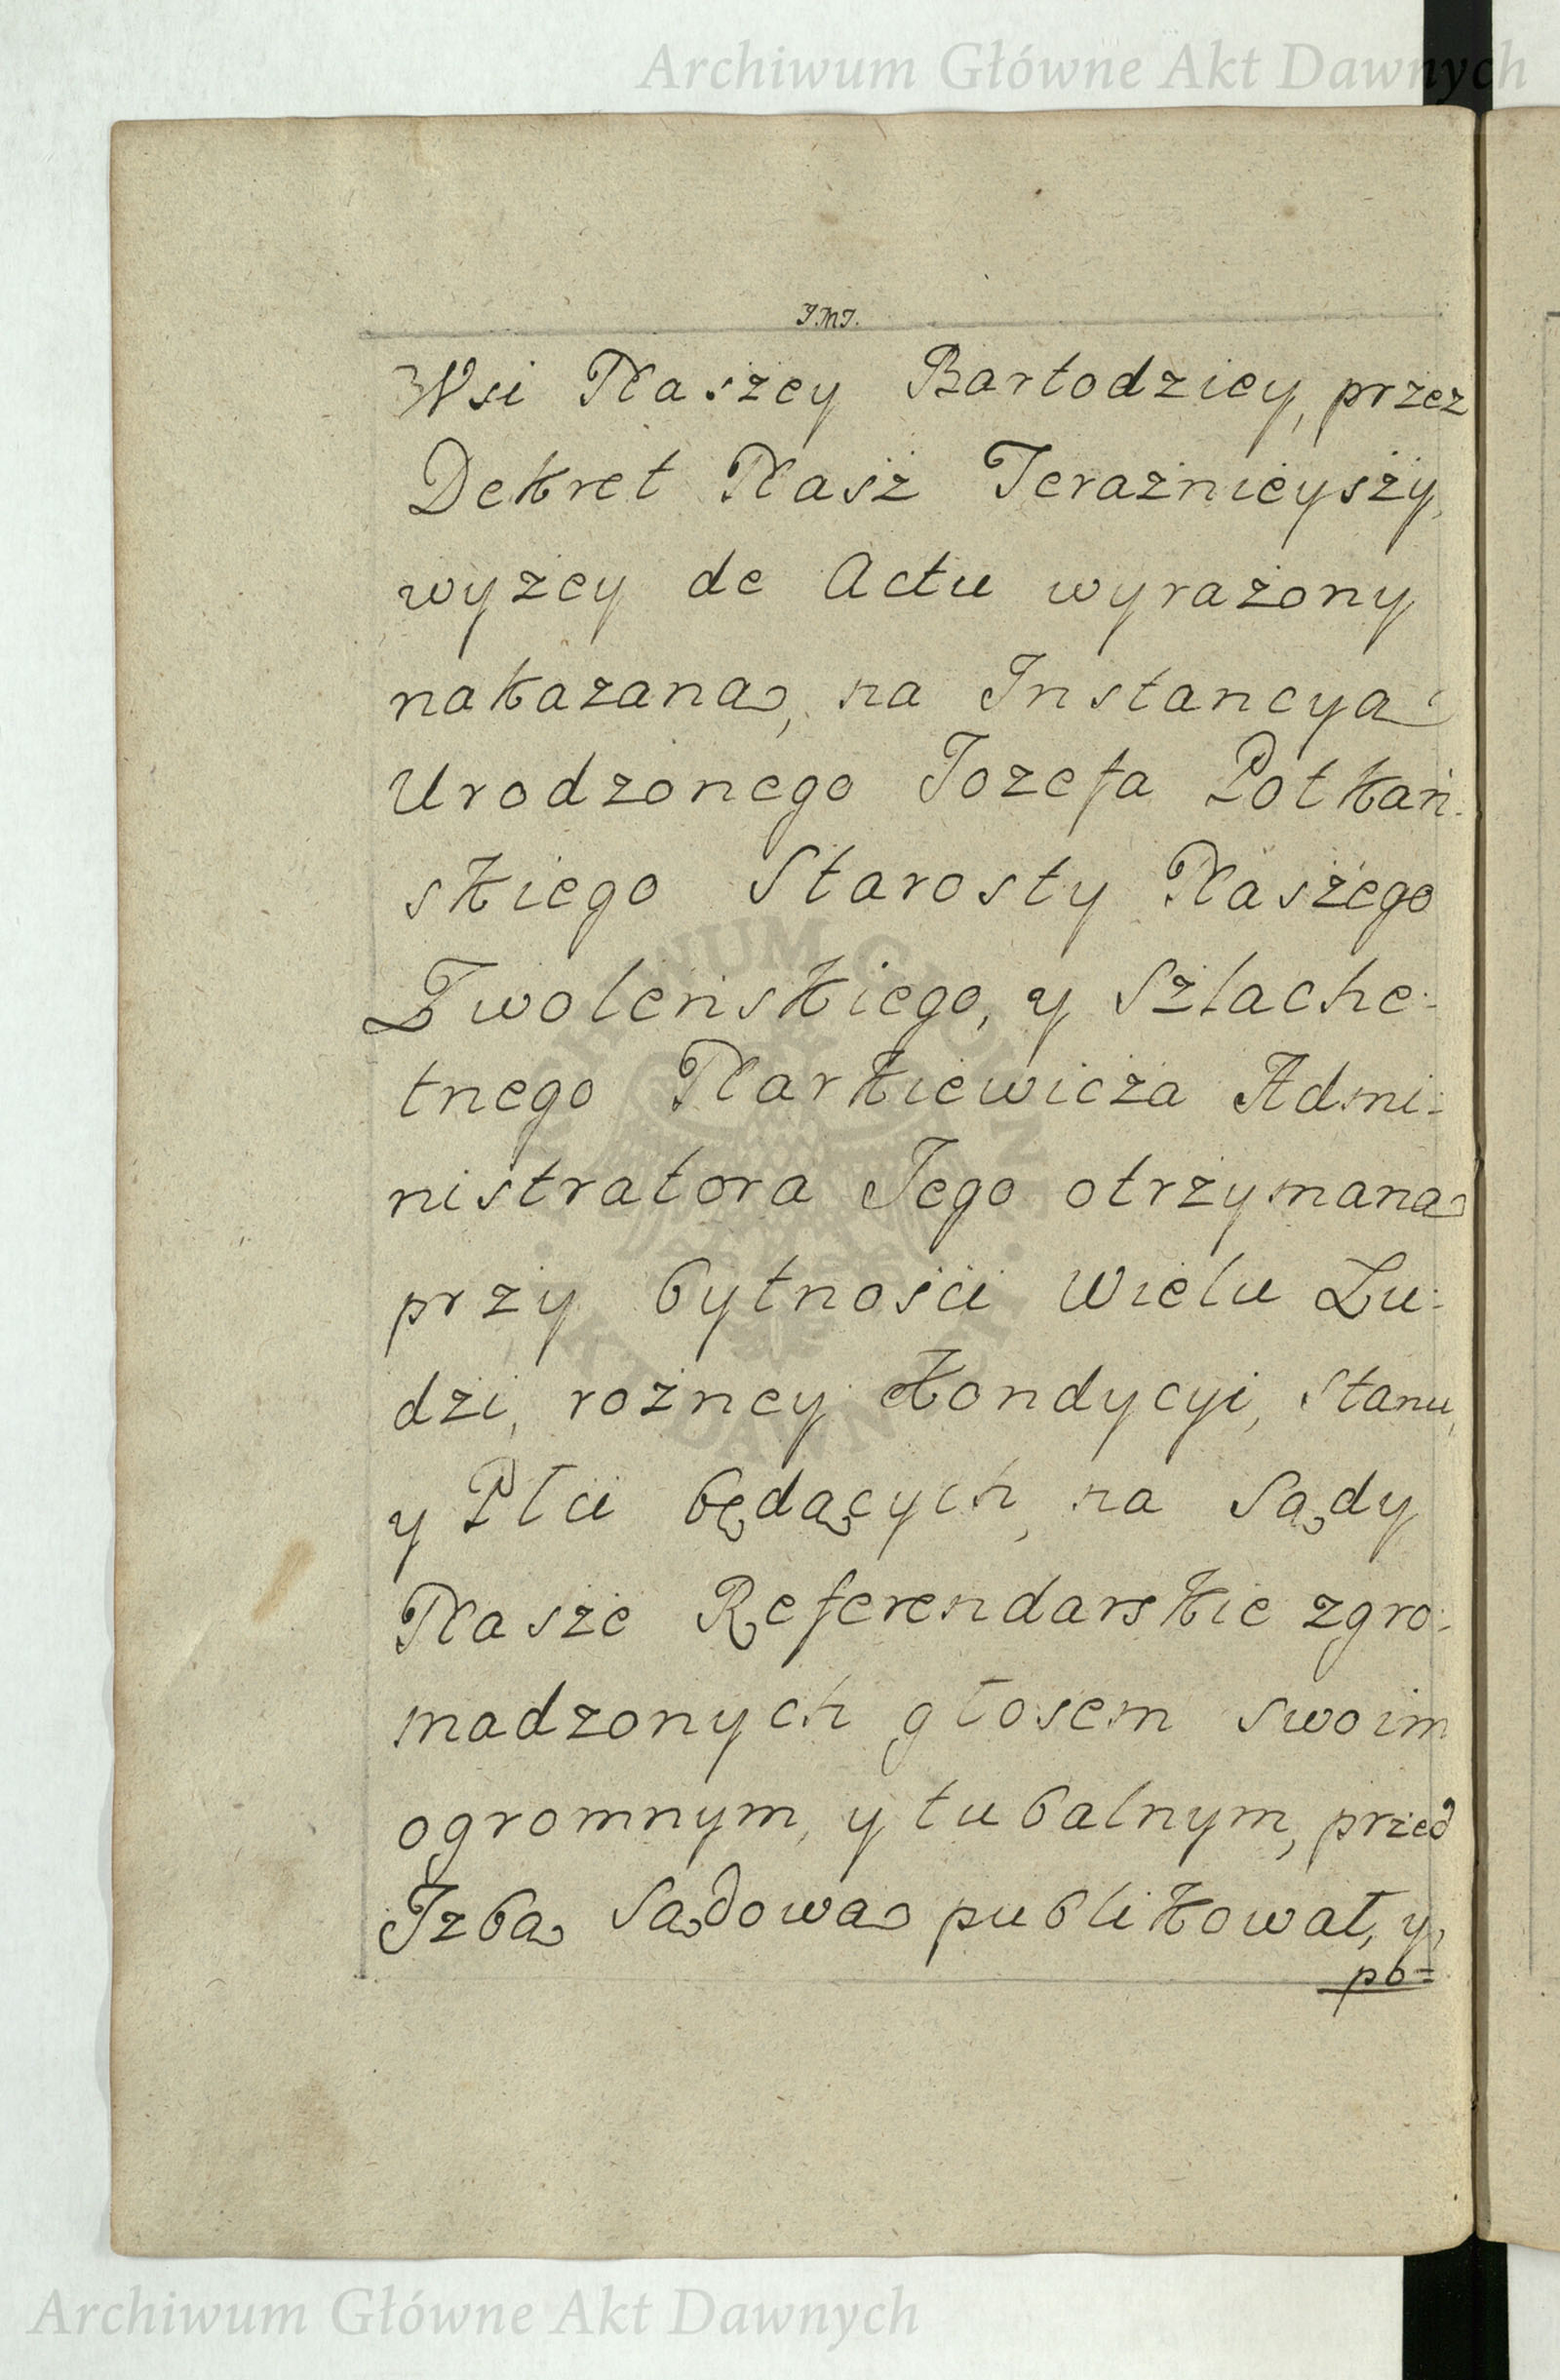 Archiwum Główne Akt Dawnych
J.M.J.
Wsi Naszey Bartodziey, przez
Dekret Nasz Teraznieyszy,
wyzey de Actu wyrażony
nakazaną, na Instancyą
Urodzonego Jozefa Potkań-
skiego Starosty Naszego
Zwoleńskiego, y Szlache-
tnego Narkiewicza Admi-
nistratora Jego otrzymaną
przy bytności Wielu Lu-
dzi, rożney Kondycyi, Stanu,
y Płci będących, na Sądy
Nasze Referendarskie zgro-
madzonych głosem swoim
ogromnym, y tubalnym, przed
Izbą Sądową publikował, y,
po=
Archiwum Główne Akt Dawnych